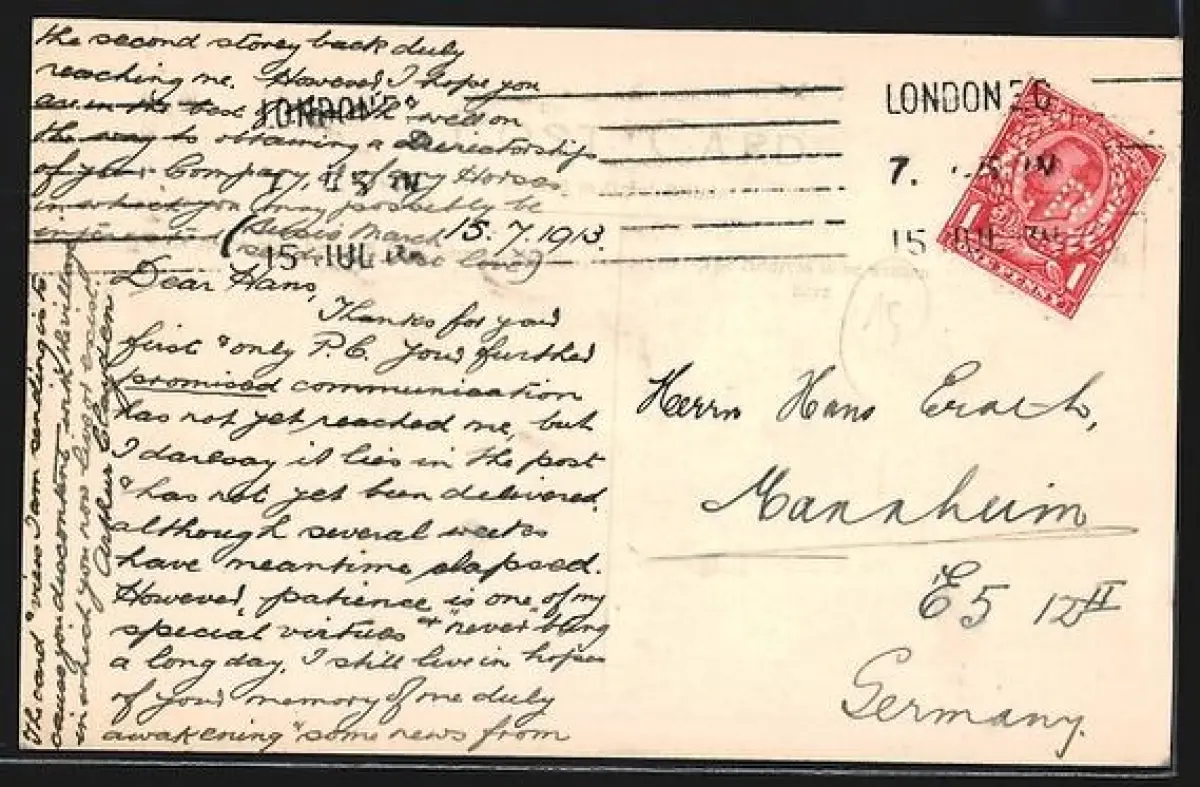 15.7.1913.
Dear Hans,
Thanks for your
first & only P.C. Your further
promised communication
has not yet reached me, but
I daresay it lies in the post
& has not yet been delivered,
although several weeks
have meantime elapsed.
However, patience is one of my
special virtues & "never" being
a long day, I still live in hopes
of your memory of me duly
awakening & some news from
the second storey back duly
reaching me. However, I hope you
are in the best of health & well on
the way to obtaining a Directorship
of your Company, & of any Horses
in which you may possibly be
interested
The card & view I am sending is to
cause you discontent with the village
in which you now
Arthur
LONDON
15 JUL
LONDON
7.
15 JUL
1 1
Herrn Hans
Mannheim
E5 12 II
Germany.